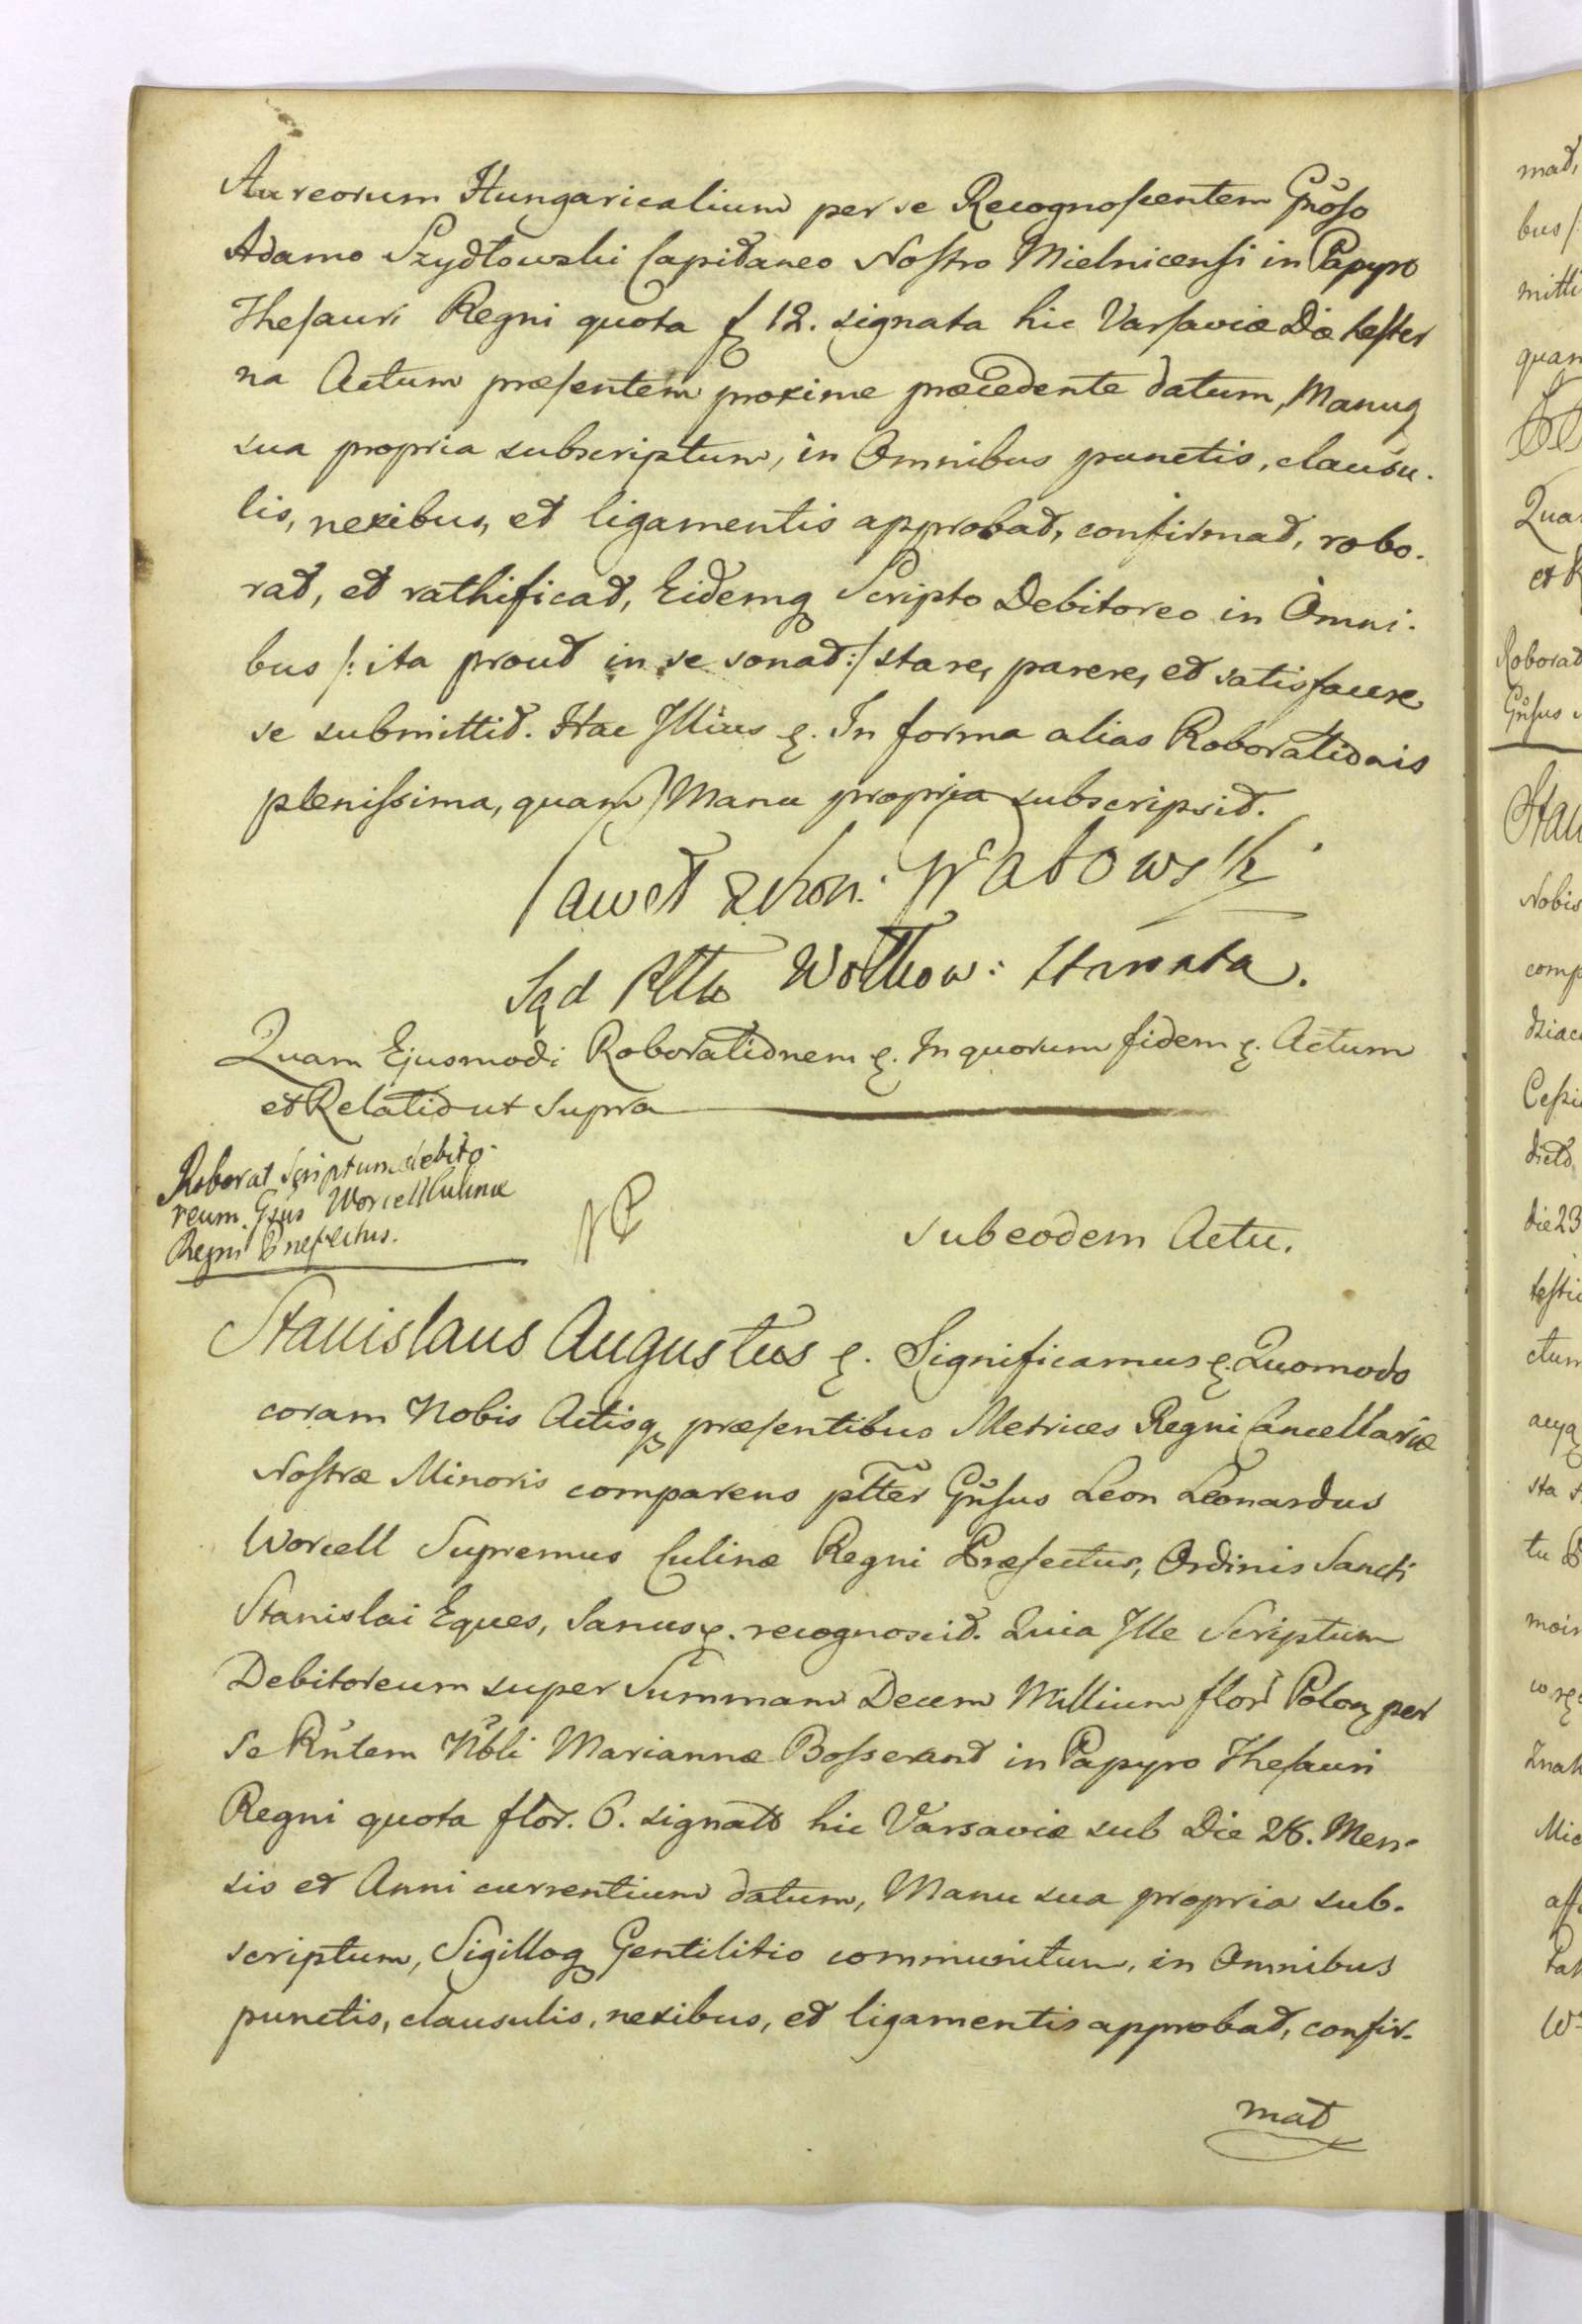 Aureorum Hungaricalium per se Recognoscentem Gnõso
Adamo Szydłowski Capitaneo Nostro Mielnicensi in Papyro
Thesauri Regni quota f 12. signata hic Varsaviæ Die hester
na Actum præsentem proxime præcedente datum, Manuq
sua propria subscriptum, in Omnibus punctis, clausu-
lis, nexibus, et ligamentis approbat, confirmat, robo-
rat, et rathificat, Eidemq Scripto Debitoreo in Omni-
bus /: ita prout in se sonat :/ stare, parere, et satisfacere
se submittit. Hac Illius &. In forma alias Roborationis
plenissima, quam Manu propria subscripsit.
Quam Ejusmodi Roborationem &. In quorum fidem &. Actum
et Relatio ut supra
Roborat Scriptum debito-
reum Gnsus Worcell Culinæ
Regni Præfectus.
sub eodem Actu.
Stanislaus Augustus &. Significamus &. Quomodo
coram Nobis Actisq præsentibus Metrices Regni Cancellariæ
Nostræ Minoris comparens pltter Gnsus Leon Leonardus
Worcell Supremus Culinæ Regni Præfectus, Ordinis Sancti
Stanislai Eques, Sanus &. recognoscit. Quia Ille Scriptum
Debitoreum super Summam Decem Millium flor Polon per
Se Rntem Nbli Mariannæ Bosserand in Papyro Thesauri
Regni quota flor. 6. signatt hic Varsaviæ sub Die 28. Men-
sis et Anni currentium datum, Manu sua propria sub-
scriptum, Sigilloq Gentilitio communitum, in Omnibus
punctis, clausulis, nexibus, et ligamentis approbat, confir-
mat